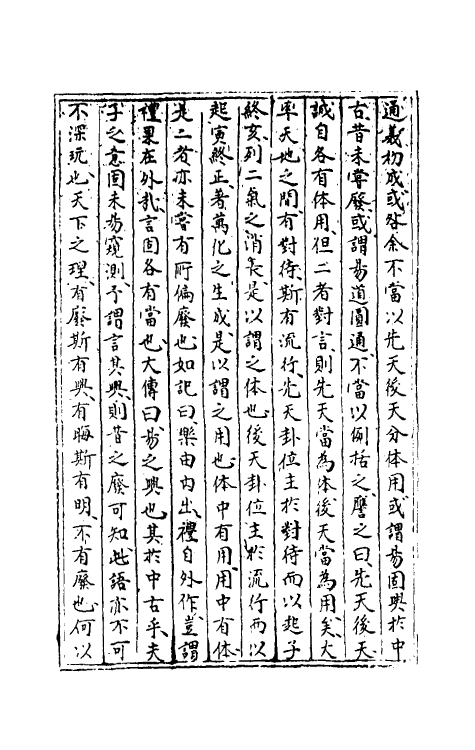 通義初成或咎余不當以先天後天分体用或謂易固興於中
古昔未嘗廢或謂易道圓通不當以例括之謄之曰先天後天
誠自各有体用但二者對言則先天當為体後天當為用矣大
率天地之間有對待斯有流行先天卦位主於對待而以起子
終亥列二氣之消長是以謂之体也後天卦位主於流行而以
起寅終丑著萬化之生成是以謂之用也体中有用用中有体
是二者亦未嘗有所偏廢也如記曰樂由内出禮自外作豈謂
禮果在外哉言固各有當也大傳曰易之興也其於中古乎夫
子之意固未易窺測予謂言其興則昔之廢可知此語亦不可
不深玩也天下之理有廢斯有興有晦斯有明不有廢也何以